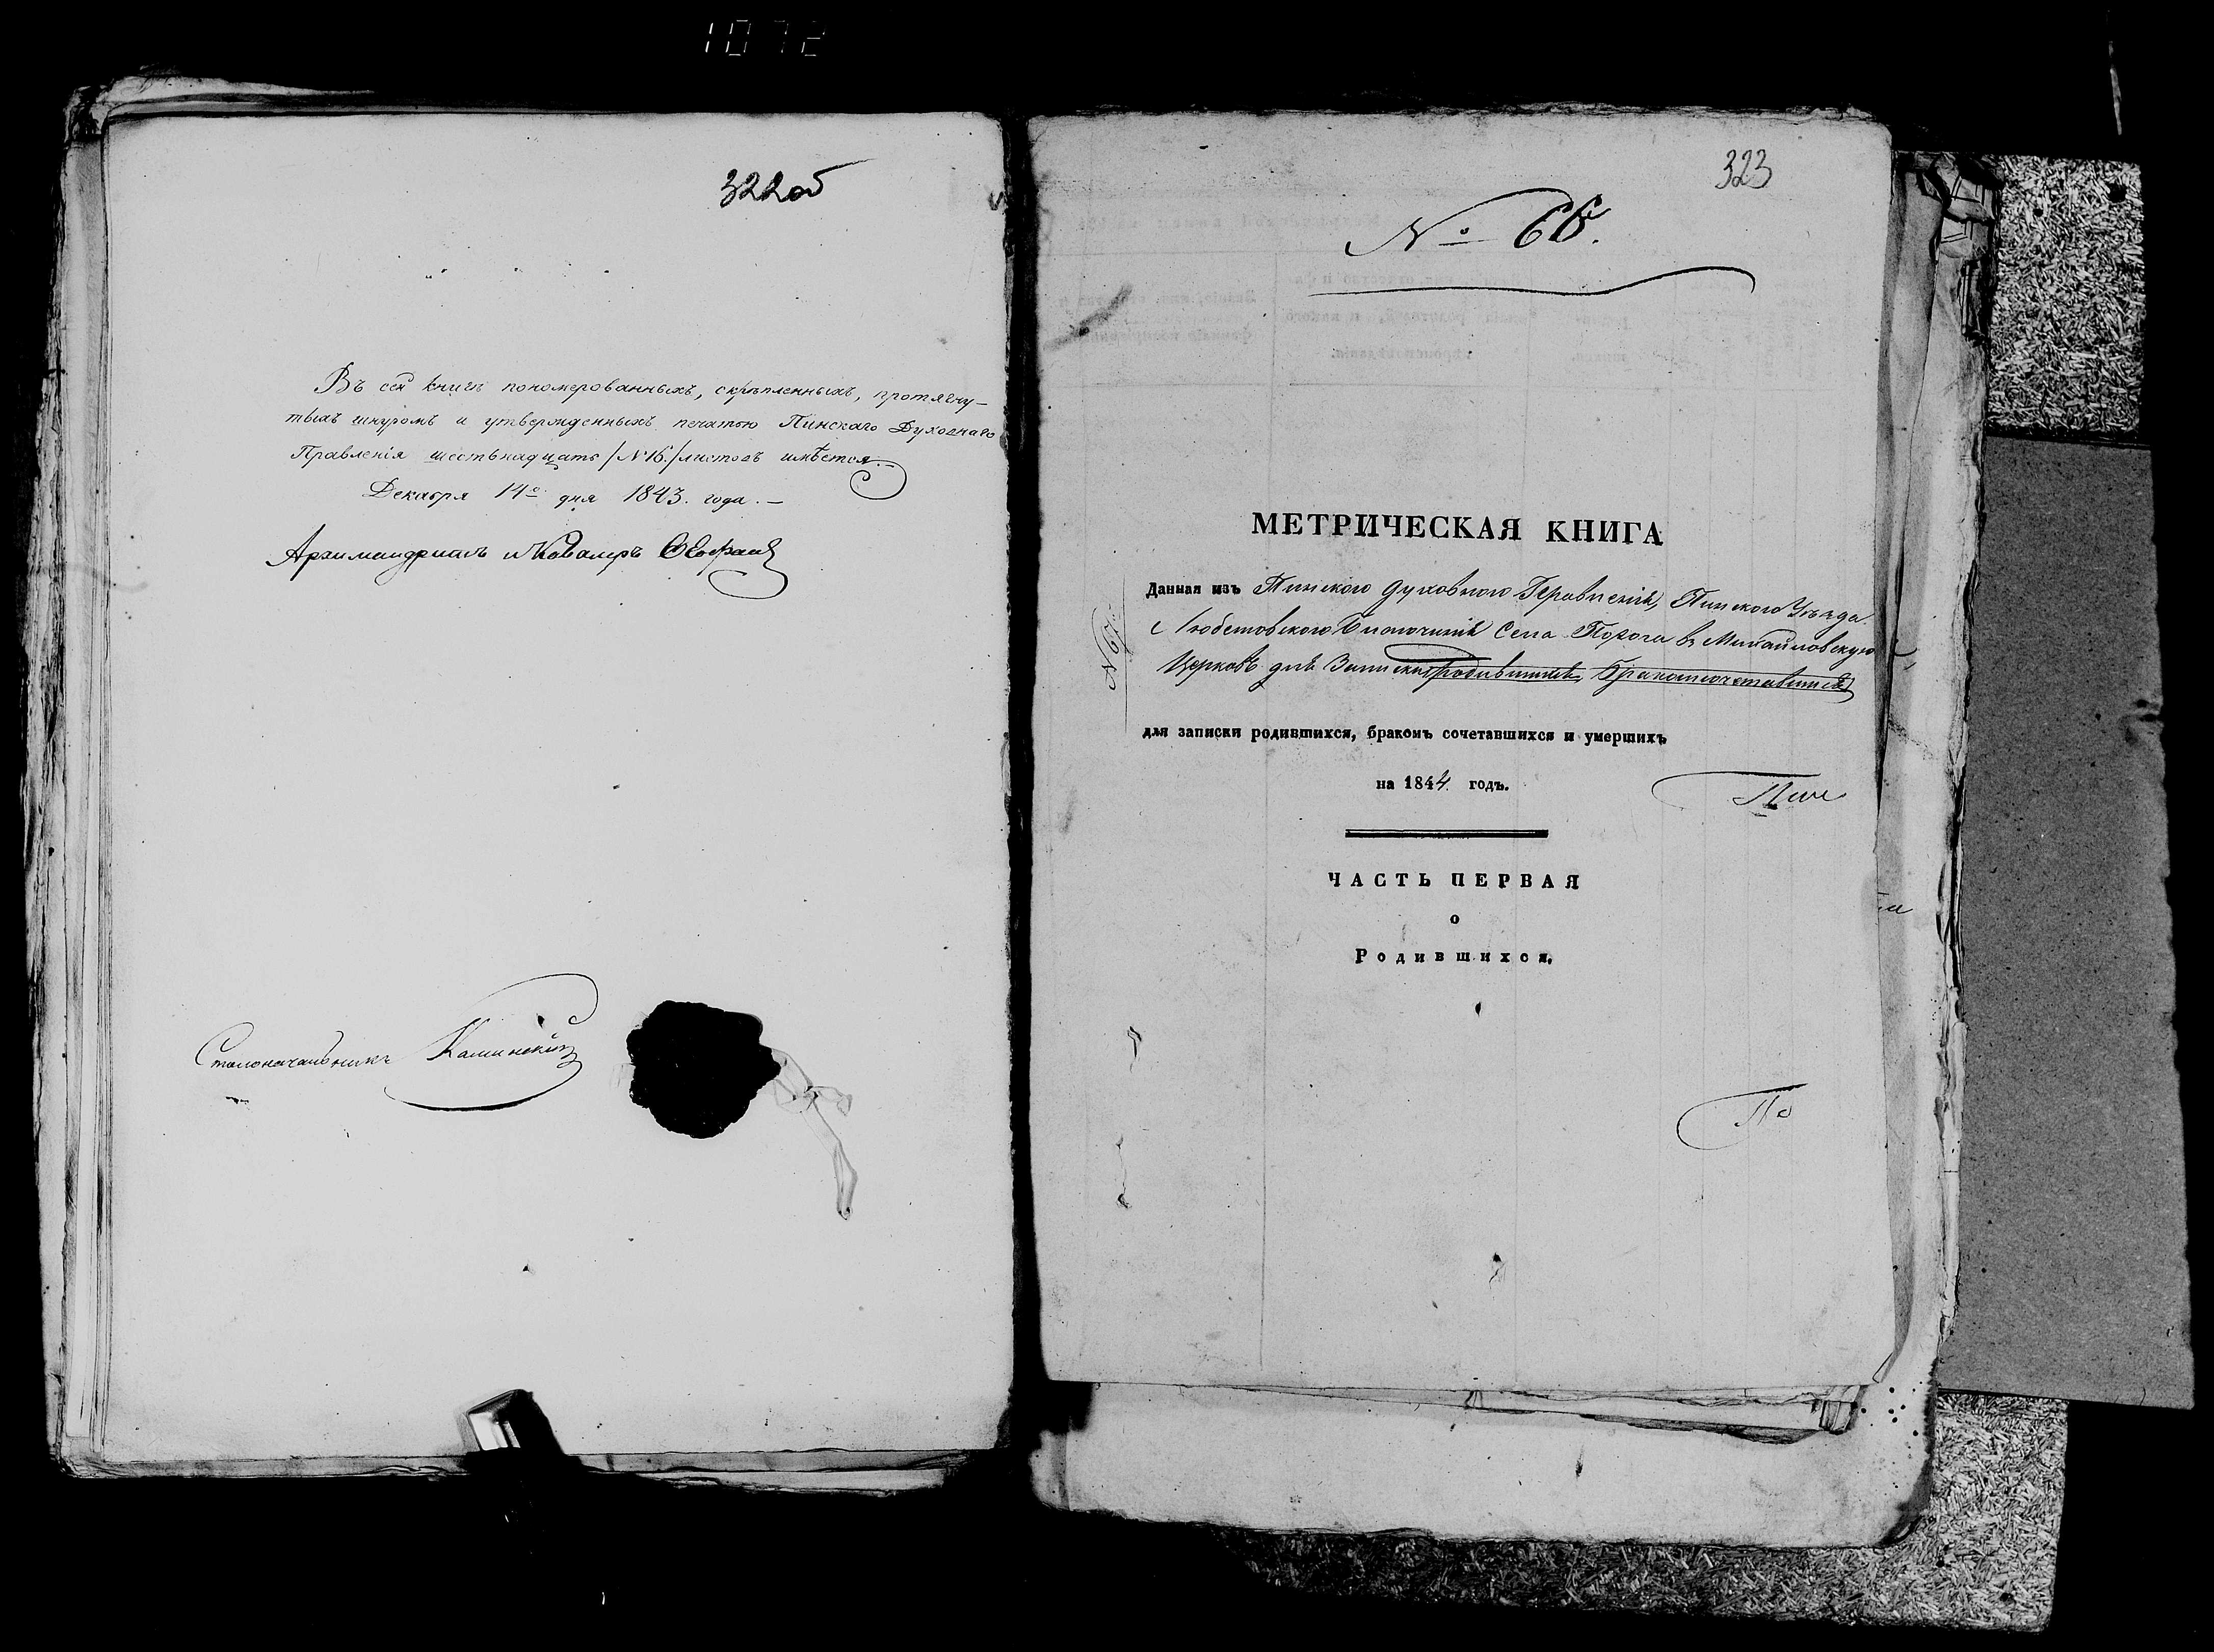 1072
322об
Въ сей книгѣ пономерованныхъ, скрѣпленныхъ, протягну-
тыхъ шнуромъ и утвержденныхъ печатью Пинскаго Духовнаго
Правленія шестьнадцать /№16./ листовъ имѣется.-
Декабря 14го дня 1843. года.-
Архимандритъ и Кавалеръ
Столоначальникъ Каминскій
323
№ 66.
МЕТРИЧЕСКАЯ КНИГА
Данная изъ Пинского Духовного Правленія, Пинского Уѣзда
Любешовского Благочинія Села в Михайловскую
Церковь для Записки родившихся, Бракомсочетавшихся
№67.
для записки родившихся, бракомъ сочетавшихся и умершихъ
на 1844. годъ.
Пин
ЧАСТЬ ПЕРВАЯ
о
Родившихся.
По